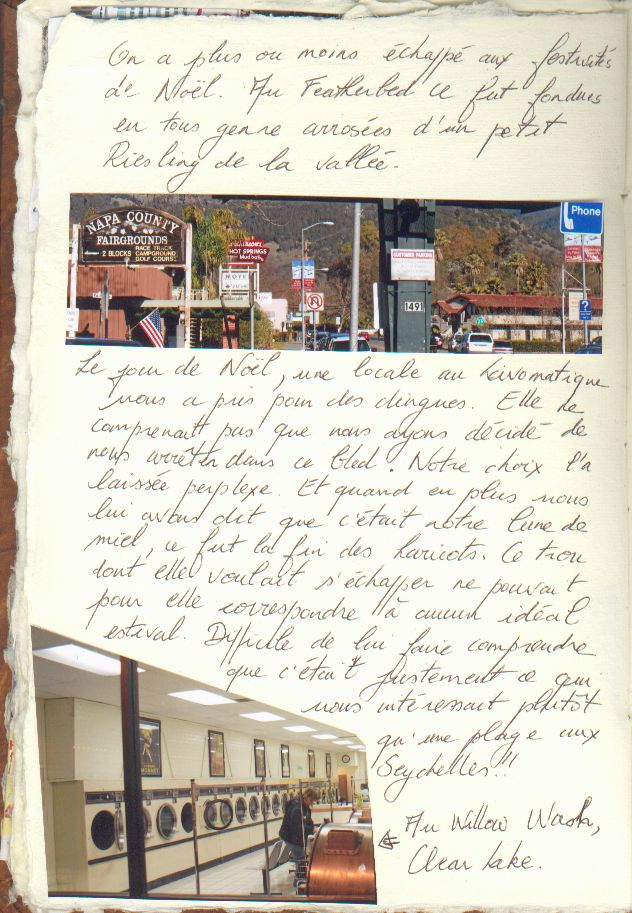 On a plus ou moins échappé aux festivités
de Noël. Au Featherbed ce fut fondues
en tous genre arrosées d'un petit
Riesling de la vallée.
NAPA COUNTY
FAIRGROUNDS
2 BLOCKS
RACE TRACK
CAMPGROUND
GOLF COURSE
HOT SPRINGS
Mud bath
MOTEL
CUSTOMER PARKING
1491
Phone
?
Le jour de Noël, une locale au Lavomatique
nous a pris pour des dingues. Elle ne
comprenait pas que nous ayons décidé de
nous arrêter dans ce bled. Notre choix l'a
laissée perplexe. Et quand en plus nous
lui avons dit que c'était notre lune de
miel, ce fut la fin des haricots. Ce trou
dont elle voulait s'échapper ne pouvait
pour elle correspondre à aucun idéal
estival. Difficile de lui faire comprendre
que c'était justement ce qui
nous intéressait plutôt
qu'une plage aux
Seychelles!!
Au Willow Wash,
Clear Lake.